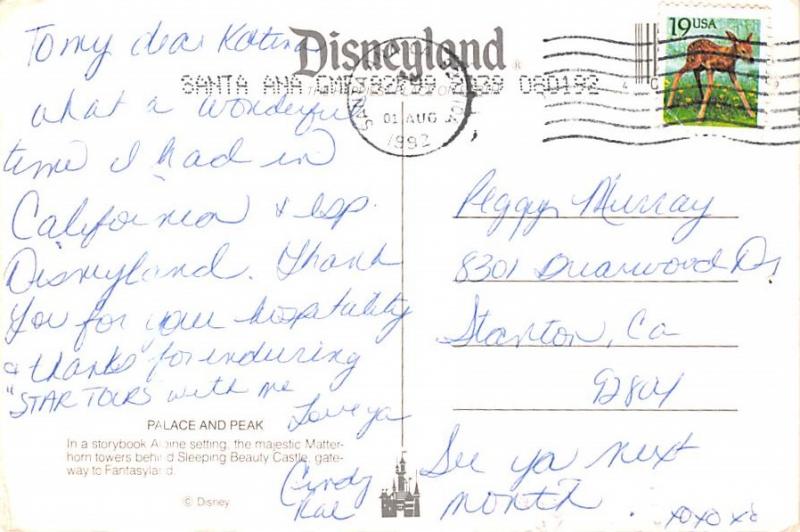 To my dear Katina
what a wonderful
time I had in
California & esp.
Disneyland. Thank
You for your hospitality
& thanks for enduring
"STAR TOURS" with me
Love ya
Cindy
Rae
Disneyland®
SANTA ANA 
01 AUG
1992
19 USA
Peggy Murray
8301 Briarwood Dr
Stanton, Ca
92804
See ya next
month. xoxoxo
PALACE AND PEAK
In a storybook Alpine setting, the majestic Matter-
horn towers behind Sleeping Beauty Castle, gate-
way to Fantasyland.
© Disney